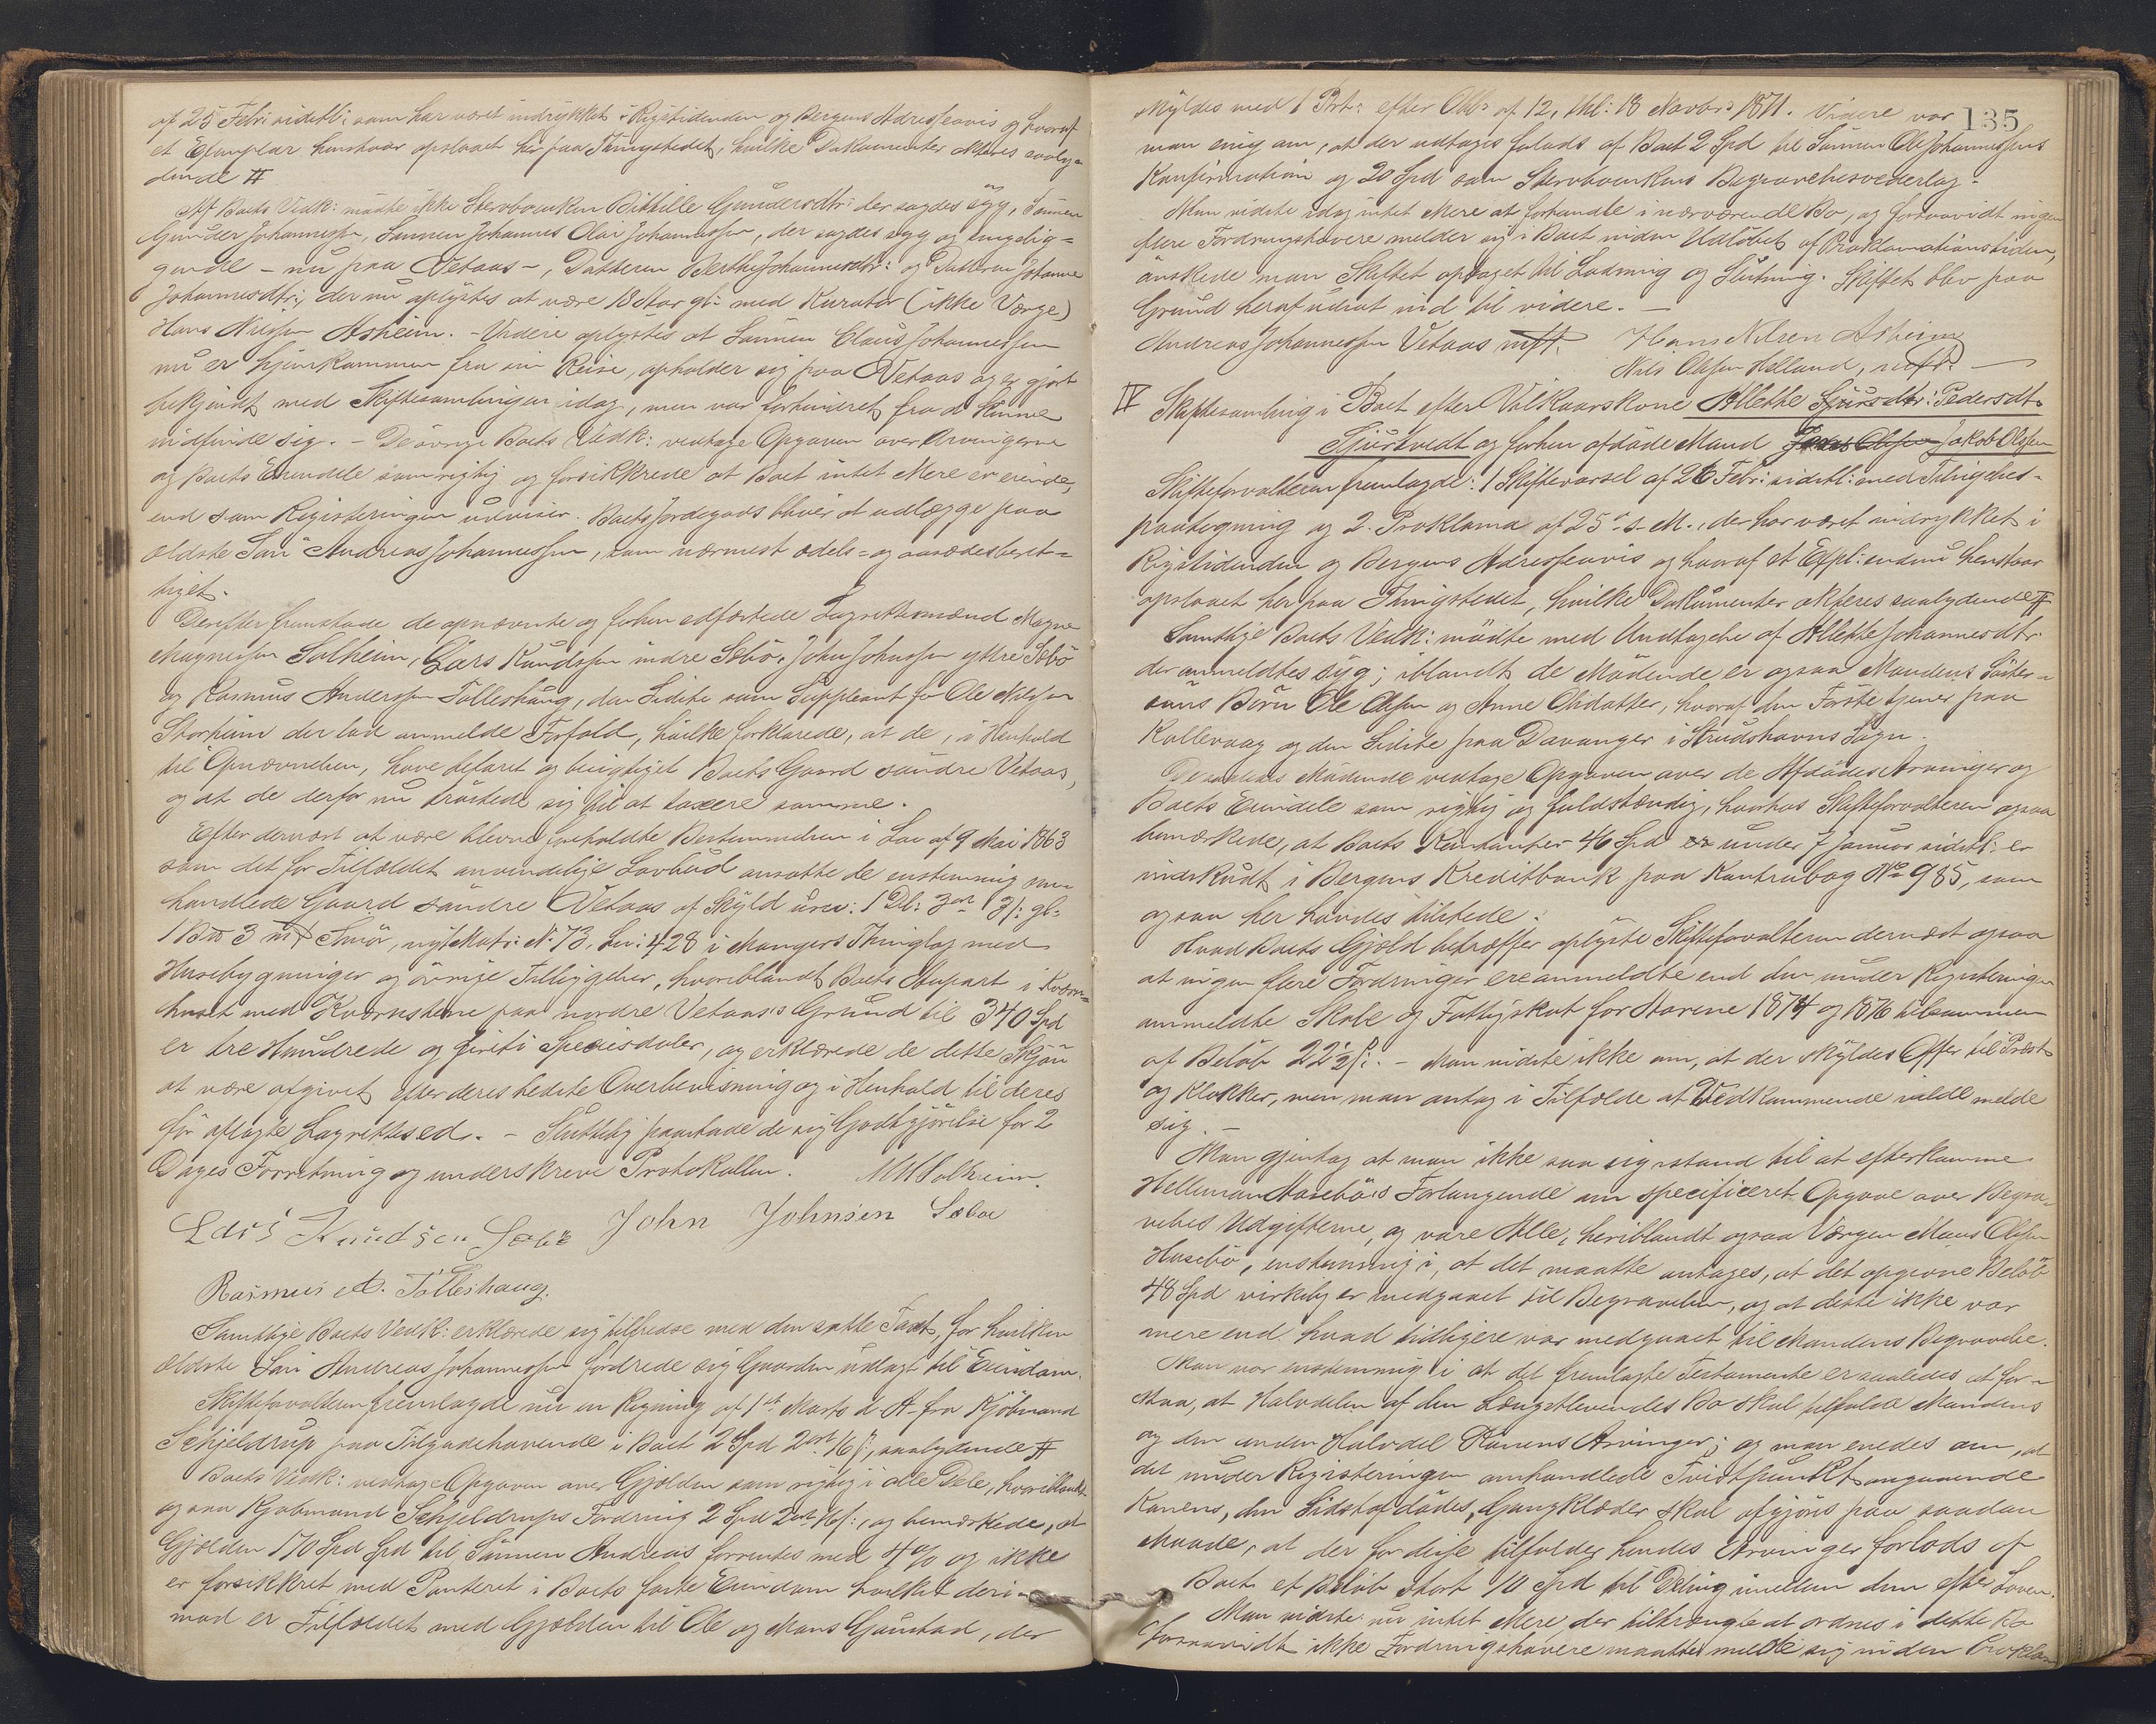 af 25 Febr: sidstl: som har været indrykket i Rigstidenden og Bergens Adresseavis og hvoraf
et Exemplar henstaar opslaaet her paa Thingstedet, hvilke Dokumenter akteres saaly-
dende #
Af Boets Vedk: mødte ikke Stervboenken Bithille Gundersdtr: der sagdes syg, Sønnen
Gunder Johannessen, Sønnen Johannes Olai Johannessen, der sagdes syg og sengelig-
gende – nu paa Vetaas –, Datteren Berthe Johannesdtr: og Datteren Johanne
Johannesdtr:, der nu oplystes at være 18 Aar gl: med Kurator (ikke Værge)
Hans Nilssen Asheim. – Videre oplystes at Sønnen Claus Johannessen
nu er hjemkommen fra sin Reise, opholder sig paa Vetaas og er gjort
bekjendt med Skiftesamlingen idag, men var forhindret fra at kunne
indfinde sig. – De øvrige Boets Vedk: vedtoge Opgaven over Arvingerne
og Boets Eiendele som rigtig og forsikkrede at Boet intet Mere er eiende,
end som Registeringen udviser. Boets Jordegods bliver at udlægge paa
ældste Søn Andreas Johannessen, som nærmest odels- og aasædesberet-
tiget.
Derefter fremstode de opnævnte og forhen edfæstede Lagrettesmænd Magne
Magnessen Solheim, Lars Knudssen indre Sæbø, John Johnssen ytre Sæbø
og Rasmus Anderssen Tolleshaug, den Sidste som Suppleant for Ole Nilssen
Storheim der lod anmelde Forfald, hvilke forklarede, at de, i Henhold
til Opnævnelsen, have befaret og besigtiget Boets Gaard søndre Vetaas,
og at de derfor nu trøstede sig til at taxere samme.
Efter dernæst at være blevne foreholdte Bestemmelsen i Lov af 9 Mai 1863
som det for Tilfældet anvendelige Lovbud ansatte de enstemmig om-
handlede Gaard søndre Vetaas af Skyld urev: 1 Dl: 3 ort 13 ß: gl:
1 Bd 3 mk Smør, nyt Matr: N: 73, Løv: 428 i Mangers Thinglag med
Husebygninger og øvrige Tilliggelser, hvoriblandt Boets Anpart i Kværn-
huset med Kværnstene paa nordre Vetaas's Grund til 340 Spd
er tre Hundrede og firti Speciesdaler, og erklærede de dette Skjøn
at være afgivet efter deres bedste Overbevisning og i Henhold til deres
før aflagte Lagrettesed. – Sluttelig paastode de sig Godtgjørelse for 2
Dages Forretning og underskreve Protokollen. MMSolheim.
Lars Knudsen Sæbø John Johnsen Sæboe
Rasmus A. Tolleshaug.
Samtlige Boets Vedk: erklærede sig tilfredse med den satte Taxt, for hvilken
ældste Søn Andreas Johannessen fordrede sig Gaarden udlagt til Eiendom.
Skifteforvalteren fremlagde nu en Regning af 1ste Marts d. A. fra Kjøbmand
Schjeldrup paa Tilgodehavende i Boet 2 Spd 2 ort 16 ß:, saalydende #
Boets Vedk: vedtoge Opgaven over Gjælden som rigtig i alle Dele, hvoriblandt
ogsaa Kjøbmand Schjeldrups Fordring 2 Spd 2 ort 16 ß:, og bemærkede, at
Gjælden 170 Spd Spd til Sønnen Andreas forrentes med 4% og ikke
er forsikkret med Panteret i Boets faste Eiendom hvilket deri-
mod er Tilfældet med Gjælden til Ole og Mons Gaustad, der
skyldes med 1 Prt: efter Obl: af 12, thl: 18 Novbr: 1871. Videre var
135
man enig om, at der udtages forlods af Boet 2 Spd til Sønnen Ole Johannessens
Konfirmation og 20 Spd som Stervboenkens Begravelsesvederlag.
Man vidste idag intet Mere at forhandle i nærværende Bo, og forsaavidt ingen
flere Fordringshavere melder sig i Boet inden Udløbet af Proklamationstiden,
ønskede man Skiftet optaget til Lodning og Slutning. Skiftet blev paa
Grund heraf udsat ind til videre. –
Andreas Johannessen Vetaas mfP. Hans Nilsen Asheim
Nils Olssen Helland, mfP. –
IV Skiftesamling i Boet efter Vilkaarskone Allethe Sjursdtr: Pedersdtr
Sjurstvedt og forhen afdøde Mand Jens Olssen Jakob Olssen
Skifteforvalteren fremlagde: 1 Skiftevarsel af 26 Febr: sidstl: med Tilsigelses-
paategning og 2. Proklama af 25 s. M., der har været indrykket i
Rigstidenden og Bergens Adresseavis og hvoraf et Expl: endnu henstaar
opslaaet her paa Thingstedet, hvilke Dokumenter akteres saalydende #
Samtlige Boets Vedk: mødte med Undtagelse af Allethe Johannesdtr:
der anmeldtes syg; iblandt de Mødende er ogsaa Mandens Søster-
søns Børn Ole Olssen og Anne Olsdatter, hvoraf den Første tjener paa
Kollevaag og den Sidste paa Davanger i Strudshavns Sogn.
De saaledes Mødende vedtoge Opgaven over de Afdødes Arvinger og
Boets Eiendele som rigtig og fuldstændig, hvorhos Skifteforvalteren ogsaa
bemærkede, at Boets Kontanter 46 Spd er under 7 Januar sidstl: er
indskudt i Bergens Kreditbank paa Kontrabog No 985, som
ogsaa her havdes tilstede.
Hvad Boets Gjæld betræffer oplyste Skifteforvalteren dernæst ogsaa
at ingen flere Fordringer ere anmeldte end den under Registeringen
anmeldte Skole og Fattigskat for Aarene 1874 og 1876 tilsammen
af Beløb 22½ ß:. – Man vidste ikke om, at der skyldes Offer til Præst
og Klokker, men man antog i Tilfælde at Vedkommende vilde melde
sig. –
Man gjentog at man ikke saa sig istand til at efterkomme
Helleman Husebøs Forlangende om specificeret Opgave over Begra-
velses Udgifterne, og vare Alle, heriblandt ogsaa Værgen Mons Olssen
Husebø, enstemmig i, at det maatte antages, at det opgivne Beløb
48 Spd virkelig er medgaaet til Begravelsen, og at dette ikke var
mere end hvad tidligere var medgaaet til Mandens Begravelse.
Man var enstemmig i at det fremlagte Testamente er saaledes at for-
staa, at Halvdelen af den Længstlevendes Bo skal tilfalde Mandens
og den anden Halvdel Konens Arvinger; og man enedes om, at
det under Registeringen omhandlede Tvistpunkt angaaende
Konens, den Sidstafdødes, Gangklæder skal afgjøres paa saadan
Maade, at der for disse tilfalder hendes Arvinger forlods af
Boet et Beløb stort 10 Spd til Deling imellem dem efter Loven.
Man vidste nu intet Mere der tiltrængte at ordnes i dette Bo
forsaavidt ikke Fordringshavere maatte melde sig inden Proklam